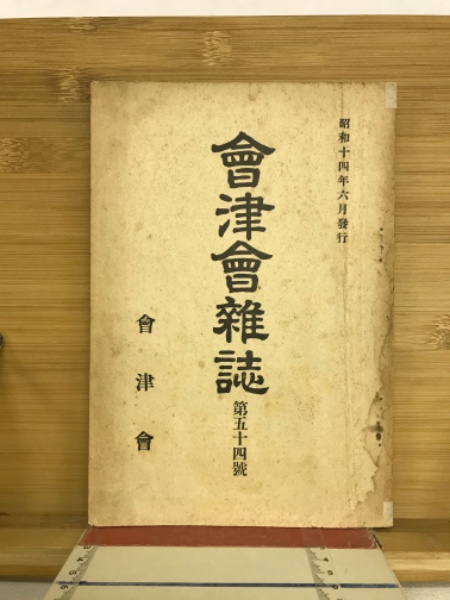 昭和十四年六月發行
會津會雜誌
第五十四號
會津會